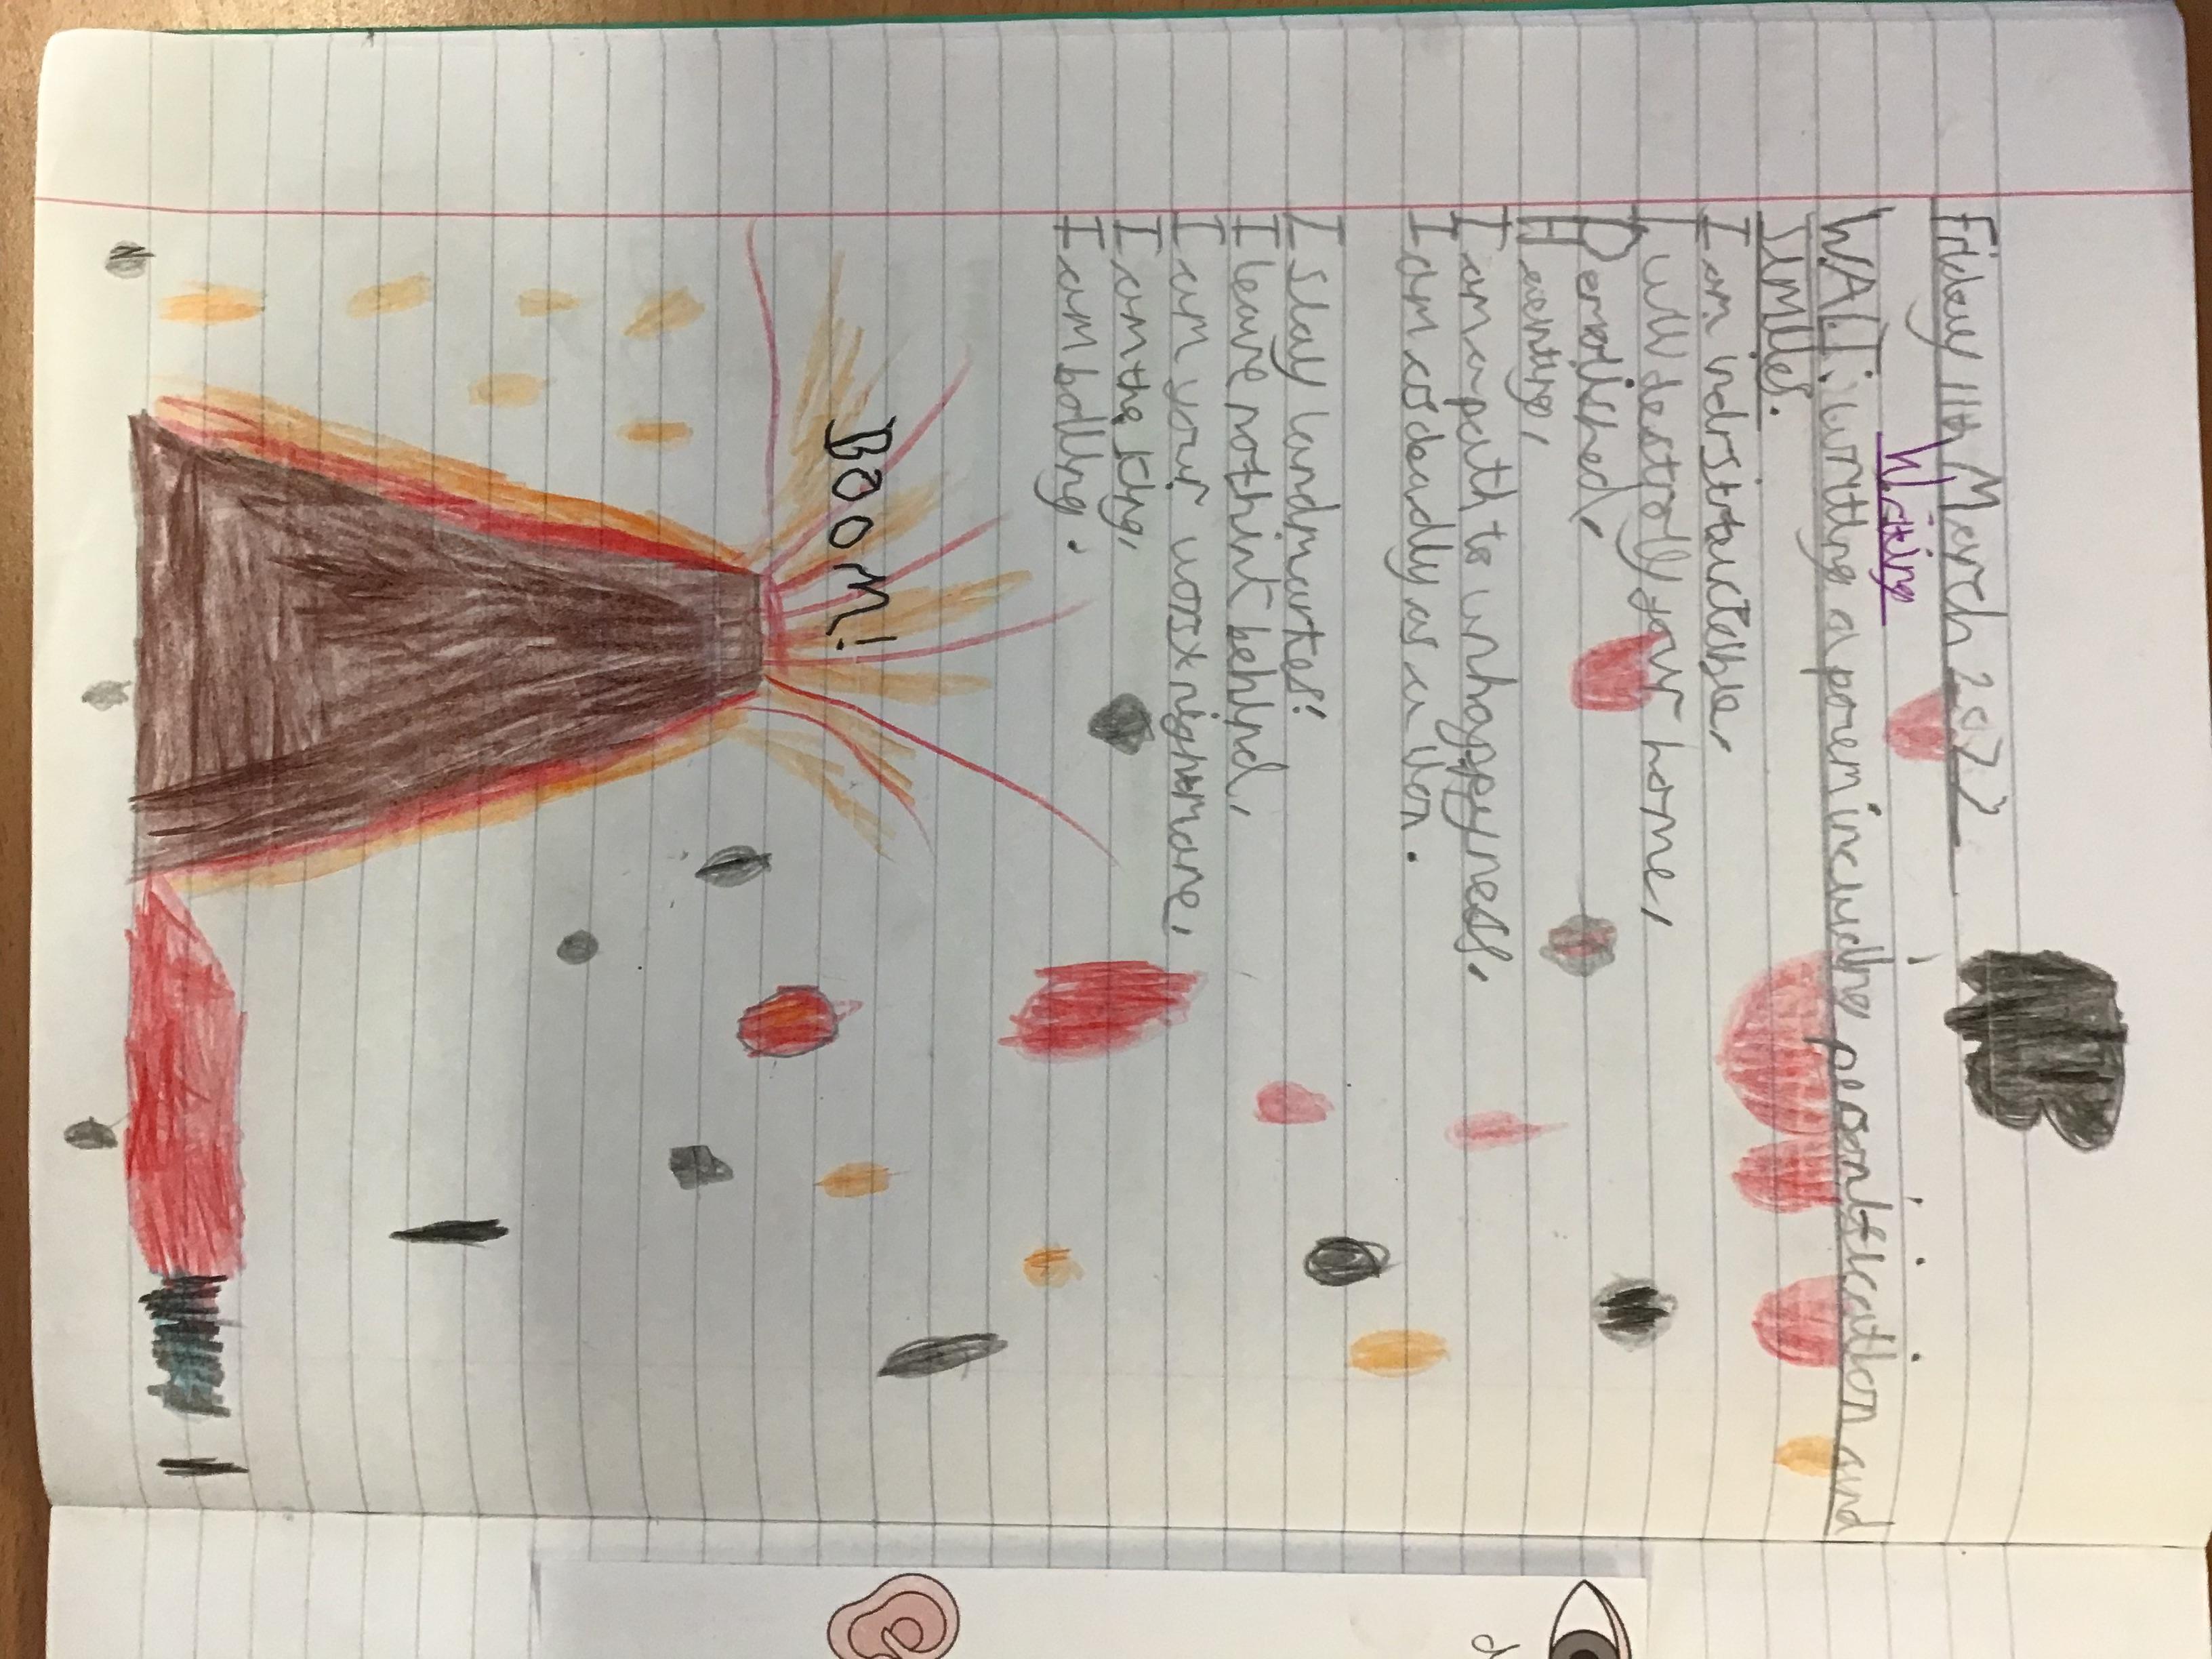 Friday 11th March 2022
Writing
WALT: writing a poem including personification and
similes.
I am indrstructable,
I will destroy your home,
Demolished,
Haenting,
I am a path to unhappyness.
I am as deadly as a lion.
I slay landmarkes!
I leave nothint behind,
I am your worst nightmare,
I am the king,
I am boiling.
Boom!
d